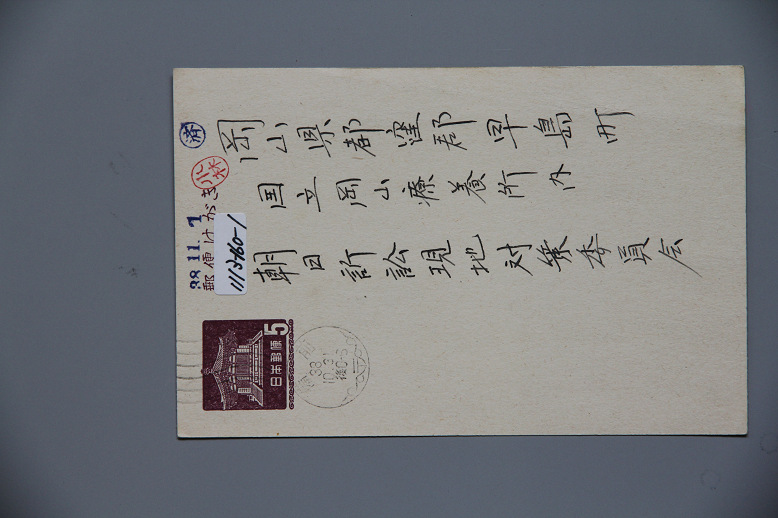 岡山県都窪郡早島町
国立岡山療養所内
朝日訴訟現地対策委員会
郵便はがき
38.11.7
済
小林
1113-160-1
5
日本郵便
38
10.31
後0-6